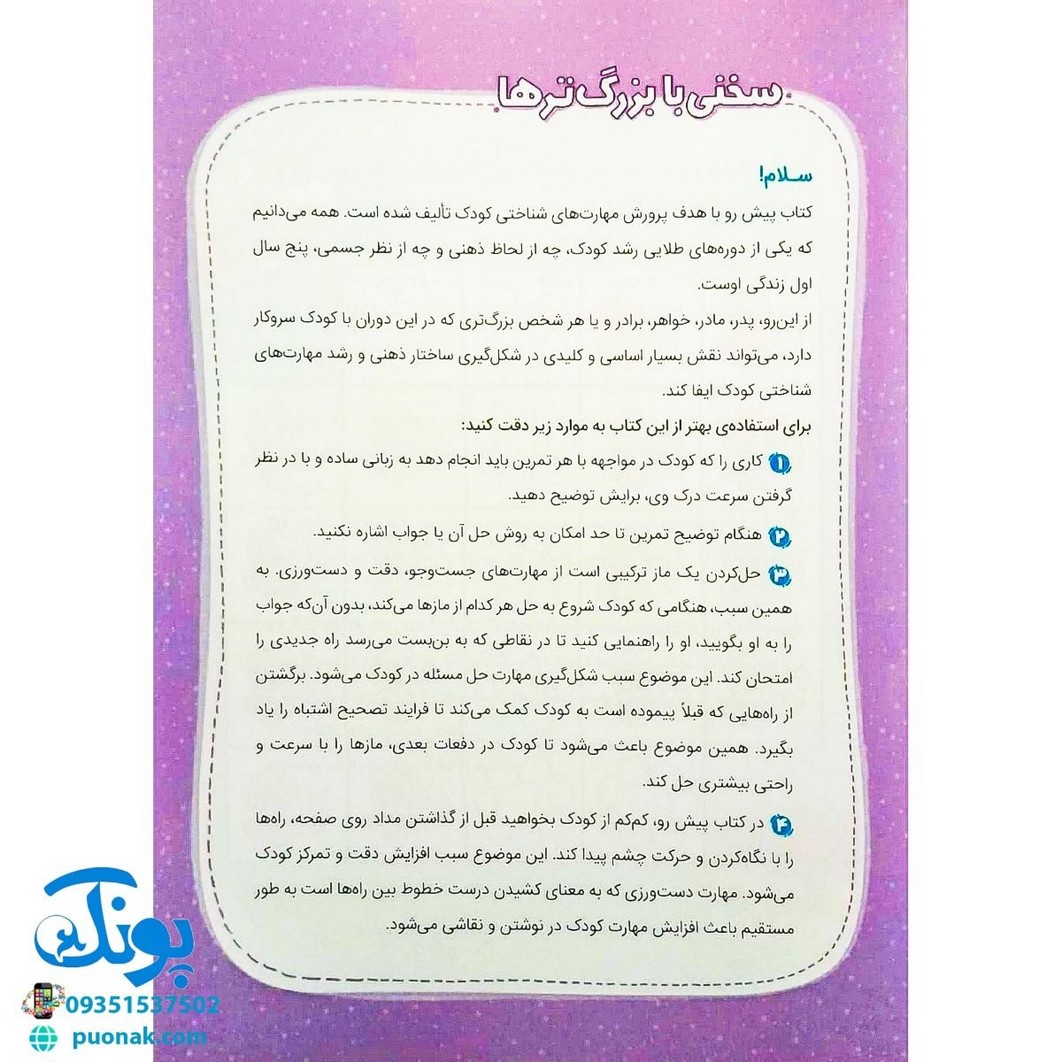 سخنی با بزرگ‌ترها
سلام!
کتاب پیش رو با هدف پرورش مهارت‌های شناختی کودک تألیف شده است. همه می‌دانیم
که یکی از دوره‌های طلایی رشد کودک، چه از لحاظ ذهنی و چه از نظر جسمی، پنج سال
اول زندگی اوست.
از این‌رو، پدر، مادر، خواهر، برادر و یا هر شخص بزرگ‌تری که در این دوران با کودک سروکار
دارد، می‌تواند نقش بسیار اساسی و کلیدی در شکل‌گیری ساختار ذهنی و رشد مهارت‌های
شناختی کودک ایفا کند.
برای استفاده‌ی بهتر از این کتاب به موارد زیر دقت کنید:
۱ کاری را که کودک در مواجهه با هر تمرین باید انجام دهد به زبانی ساده و با در نظر
گرفتن سرعت درک وی، برایش توضیح دهید.
۲ هنگام توضیح تمرین تا حد امکان به روش حل آن یا جواب اشاره نکنید.
۳ حل‌کردن یک ماز ترکیبی است از مهارت‌های جست‌وجو، دقت و دست‌ورزی. به
همین سبب، هنگامی که کودک شروع به حل هر کدام از مازها می‌کند، بدون آن‌که جواب
را به او بگویید، او را راهنمایی کنید تا در نقاطی که به بن‌بست می‌رسد راه جدیدی را
امتحان کند. این موضوع سبب شکل‌گیری مهارت حل مسئله در کودک می‌شود. برگشتن
از راه‌هایی که قبلاً پیموده است به کودک کمک می‌کند تا فرایند تصحیح اشتباه را یاد
بگیرد. همین موضوع باعث می‌شود تا کودک در دفعات بعدی، مازها را با سرعت و
راحتی بیشتری حل کند.
۴ در کتاب پیش رو، کم‌کم از کودک بخواهید قبل از گذاشتن مداد روی صفحه، راه‌ها
را با نگاه‌کردن و حرکت چشم پیدا کند. این موضوع سبب افزایش دقت و تمرکز کودک
می‌شود. مهارت دست‌ورزی که به معنای کشیدن درست خطوط بین راه‌ها است به طور
مستقیم باعث افزایش مهارت کودک در نوشتن و نقاشی می‌شود.
پونک
09351537502
puonak.com